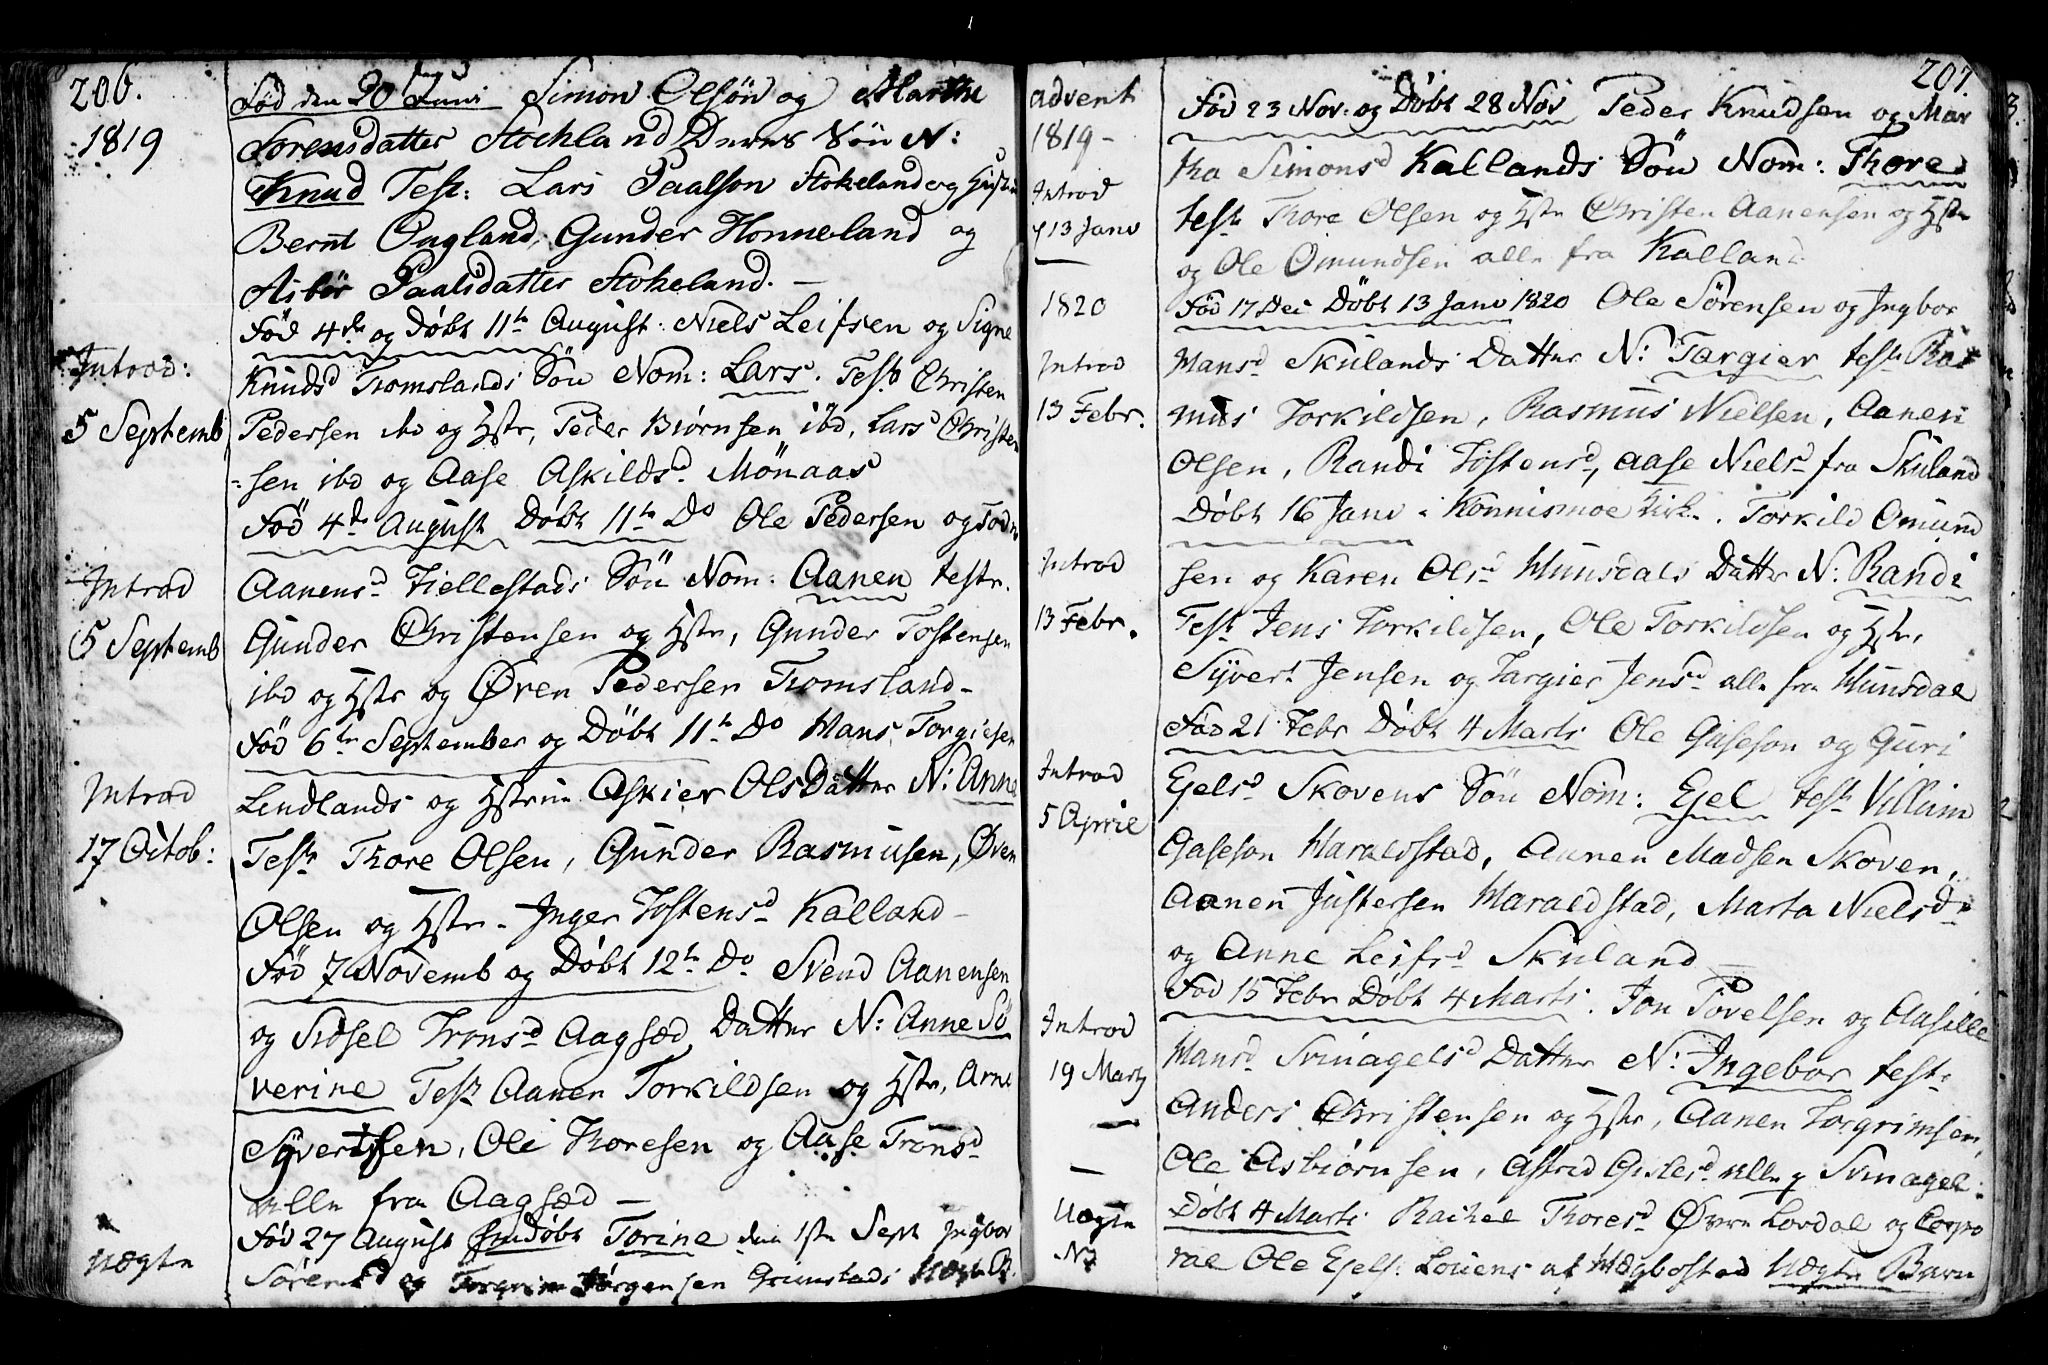 206.
1819
Fød den 30 Juni Simon Olsön og Marthe
Lorensdatter Stokland Deres Sön N:
Knud Test: Lars Paalson Stokeland og Hustru
Bernt Ougland, Gunder Honneland og
Asbör Paalsdatter Stokeland. —
Fød 4de og Døbt 11te August: Niels Leifsen og Signe
Introd:
Knudsd Tromslands Sön Nom: Lars. Test Christen
5 Septemb
Pedersen ibd og Hstr, Peder Biørnsen ibd, Lars Christen
=sen ibd og Aase Askildsd. Mönaas
Fød 4de August Døbt 11te Do Ole Pedersen og
Introd
Aanensd Fiellestads Sön Nom: Aanen testr.
5 Septemb
Gunder Christensen og Hstr, Gunder Tostensen
ibd og Hstr og Øven Pedersen Tromsland-
Fød 6te September og Döbt 11te Do Hans Torgiesen
Introd
Lendlands og Hstrue Askier Ols Datter N: Anne
17 Octob:
Testr Thore Olsen, Gunder Rasmusen, Øven
Olsen og Hstr. Inger Tostensd Kalland-
Fød 7 Novemb og Döbt 12te Do Svend Aanensen
og Sidsel Tronsd Aagsæd Datter N: Anne Sö
verine Testr Aanen Torkildsen og Hstr, Arne
Syvertsen, Ole Thoresen og Aase Tronsd
alle fra Aagsæd —
Fød 27 August Døbt Torine den 1ste Sept Ingbor
Uægte
Sörensd og Torgrim Jörgensen Grimstads Uægte B.
207.
Advent
1819-
Fød 23 Nov: og Døbt 28 Nov Peder Knudsen og Mar
tha Simonsd Kallands Sön Nom: Thore
Introd
13 Janv
test Thore Olsen og Hstr Christen Aanensen og Hstr
og Ole Omundsen alle fra Kalland
1820
Fød 17 Dec Döbt 13 Janv 1820 Ole Sörensen og Ingbor
Introd
Hansd Skulands Datter N: Targier test Ras
13 Febr.
mus Torkildsen, Rasmus Nielsen, Aanen
Olsen, Randi Tostensd, Aase Nielsd fra Skuland
Döbt 16 Janv i Konnismoe Kirke. Torkild Omund
Introd
sen og Karen Olsd Hunsdals Datter N: Randi
13 Febr.
Test Jens Torkildsen, Ole Torkildsen og Hstr,
Syvert Jensen og Targier Jensd alle fra Hunsdal
Fød 21 Febr Döbt 4 Marti Ole Gaseson og Guri
Introd
Ejelsd Skovens Sön Nom: Ejel test Villum
5 April
Gaseson Haraldstad, Aanen Madsen Skoven,
Aanen Justersen Haraldstad, Marta Nielsdr
og Anne Leifsd Skuland —
Fød 15 Febr Döbt 4 Marti. Jon Povelsen og Aasille
Introd
Hansd Svinagels Datter N: Ingebor test:
19 Marty
Anders Christensen og Hstr, Aanen Torgrimsen,
Ole Asbiörnsen, Astrid Gislesd alle p Svinagel:
Uægte
Döbt 4 Marti Rachel Thoresd Øvre Lordal og Corpo
N7
ral Ole Ejels: Louens af Hægbostad Uægte Barn